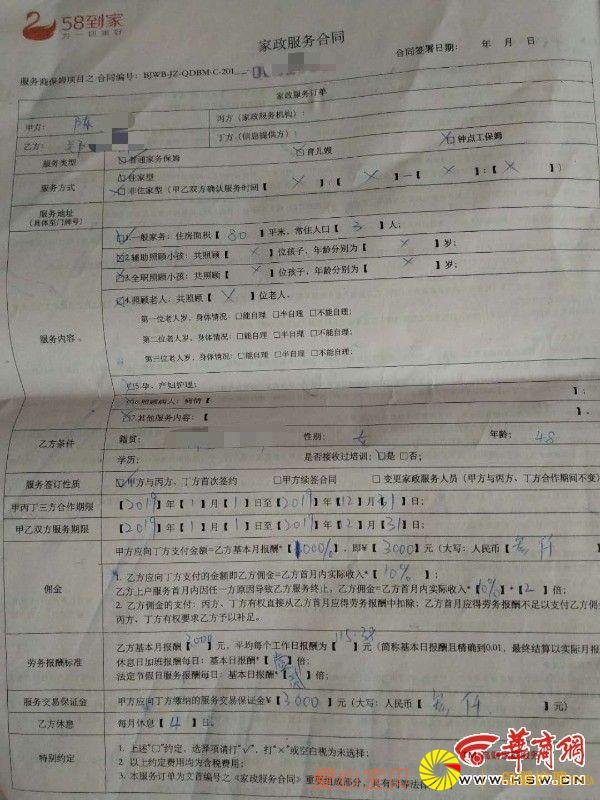 58到家
为一切美好
家政服务合同
合同签署日期: 年 月 日
服务商保姆项目之 合同编号: BJWB-JZ-QDBM-C-201
家政服务订单
甲方: 陈
丙方(家政服务机构):
乙方:
丁方(信息提供方):
服务类型 ☑普通家务保姆 ☒育儿嫂 ☒钟点工保姆
服务方式 □住家型
☑非住家型(甲乙双方确认服务时间【×】:【×】—【×】:【×】)
服务地址
(具体至门牌号)
服务内容
☑1.一般家务: 住房面积【80】平米, 常住人口【3】人;
☒2.辅助照顾小孩: 共照顾【×】位孩子, 年龄分别为【×】岁;
☒3.全职照顾小孩: 共照顾【×】位孩子, 年龄分别为【×】岁;
☒4.照顾老人: 共照顾【×】位老人。
第一位老人岁, 身体情况: □能自理 □半自理 □不能自理;
第二位老人岁, 身体情况: □能自理 □半自理 □不能自理;
第三位老人岁, 身体情况: □能自理 □半自理 □不能自理;
☒5.孕、产妇护理:
☒6.照顾病人: 病情【 】;
☒7.其他服务内容:【 】。
乙方条件
籍贯: 性别: 女 年龄: 48
学历: 是否接收过培训: ☑是 □否;
服务签订性质 ☑甲方与丙方、丁方首次签约 □甲方续签合同 □变更家政服务人员(甲方与丙方、丁方合作期间不变)
甲丙丁三方合作期限 【2019】年【1】月【1】日至【2019】年【12】月【31】日;
甲乙双方服务期限 【2019】年【1】月【1】日至【2019】年【12】月【31】日;
佣金
甲方应向丁方支付金额=乙方基本月报酬*【100%】, 即¥【3000】元(大写: 人民币【叁仟
1. 乙方应向丁方支付的金额即乙方佣金=乙方首月内实际收入*【10%】;
乙方上户服务首月内因任一方原因导致乙方服务终止, 乙方佣金=乙方首月内实际收入*【10%】*【2】倍;
2. 乙方佣金的支付: 丙方、丁方有权直接从乙方首月应得劳务报酬中扣除; 乙方首月应得劳务报酬不足以支付乙方佣金
丙方、丁方有权要求乙方予以补足。
劳务报酬标准
乙方基本月报酬【3000】元, 平均每个工作日报酬为【115.38】元(简称基本日报酬且精确到0.01, 最终结算以实际月报
休息日加班报酬每日: 基本日报酬*【壹】倍;
法定节假日服务报酬每日: 基本日报酬*【贰】倍;
服务交易保证金 甲方应向丁方缴纳的服务交易保证金¥【3000】元(大写: 人民币【叁仟】元)
乙方休息 每月休息【4】日;
特别约定
1. 上述"□"约定, 选择项请打"√", 打"×"或空白视为未选择;
2. 以上约定费用均为含税费用;
3. 本服务订单为文首编号之《家政服务合同》重要组成部分, 具有同等法律
华商网
WWW.HSW.CN